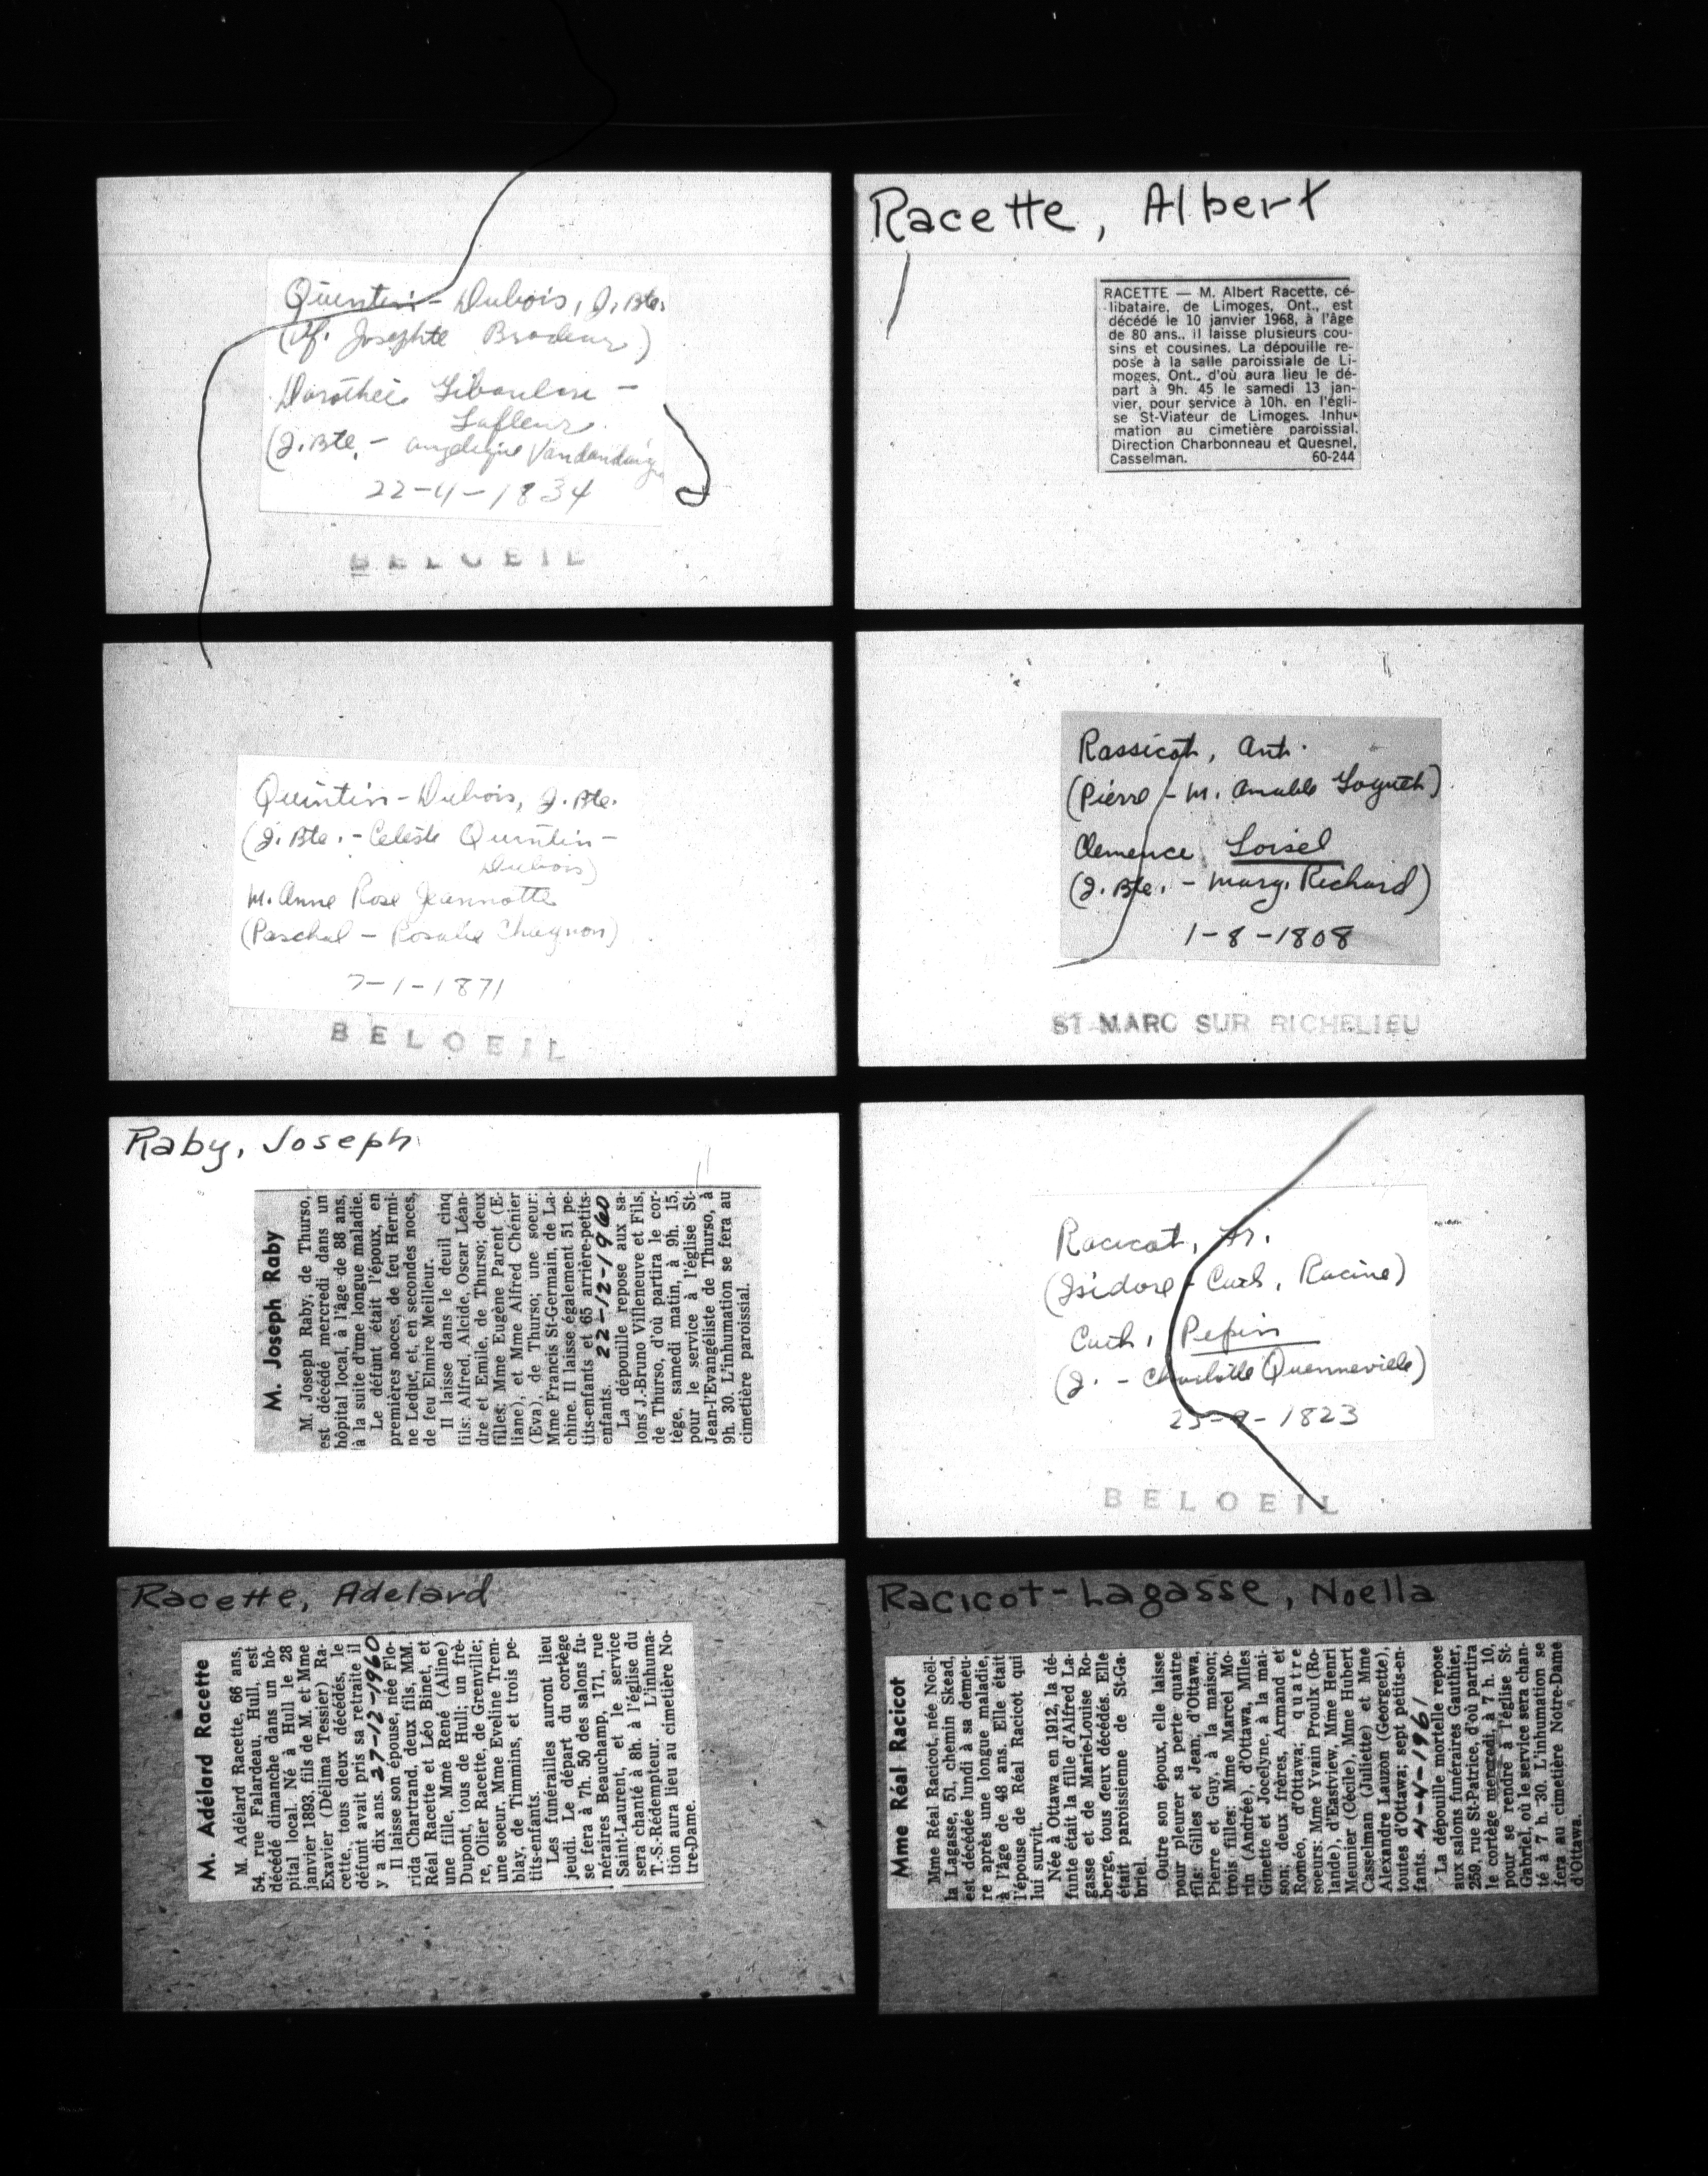 Quintin - Dubois, J. Bte.
(Af. Josephte Brodeur)
Dorothée Libouliou -
Lafleur
(J. Bte. - Angélique Vandandaigue
22-4-1834
BELOEIL
Quintin - Dubois, J. Bte.
(J. Bte. - Celeste Quintin -
Dubois)
M. Anne Rose Jeannotte
(Paschal - Rosalie Chagnon)
7-1-1871
BELOEIL
Raby, Joseph
M. Joseph Raby
M. Joseph Raby, de Thurso,
est décédé mercredi dans un
hôpital local, à l'âge de 88 ans,
à la suite d'une longue maladie.
Le défunt était l'époux, en
premières noces, de feu Hermi-
ne Leduc, et, en secondes noces,
de feu Elmire Meilleur.
Il laisse dans le deuil cinq
fils: Alfred, Alcide, Oscar Léan-
dre et Emile, de Thurso; deux
filles: Mme Eugène Parent (E-
liane), et Mme Alfred Chénier
(Eva), de Thurso; une soeur:
Mme Francis St-Germain, de La-
chine. Il laisse également 51 pe-
tits-enfants et 65 arrière-petits-
enfants. 22-12-1960
La dépouille repose aux sa-
lons J.-Bruno Villeneuve et Fils,
de Thurso, d'où partira le cor-
tège, samedi matin, à 9h. 15,
pour le service à l'église St-
Jean-l'Evangéliste de Thurso, à
9h. 30. L'inhumation se fera au
cimetière paroissial.
Racette, Adelard
M. Adélard Racette
M. Adélard Racette, 66 ans,
54, rue Falardeau, Hull, est
décédé dimanche dans un hô-
pital local. Né à Hull le 28
janvier 1893, fils de M. et Mme
Exavier (Délima Tessier) Ra-
cette, tous deux décédés, le
défunt avait pris sa retraite il
y a dix ans. 27-12-1960
Il laisse son épouse, née Flo-
rida Chartrand, deux fils, MM.
Réal Racette et Léo Binet, et
une fille, Mme René (Aline)
Dupont, tous de Hull; un frè-
re, Olier Racette, de Grenville;
une soeur, Mme Eveline Trem-
blay, de Timmins, et trois pe-
tits-enfants.
Les funérailles auront lieu
jeudi. Le départ du cortège
se fera à 7h. 50 des salons fu-
néraires Beauchamp, 171, rue
Saint-Laurent, et le service
sera chanté à 8h. à l'église du
T.-S.-Rédempteur. L'inhuma-
tion aura lieu au cimetière No-
tre-Dame.
Racette, Albert
RACETTE — M. Albert Racette, cé-
libataire, de Limoges, Ont., est
décédé le 10 janvier 1968, à l'âge
de 80 ans., il laisse plusieurs cou-
sins et cousines. La dépouille re-
pose à la salle paroissiale de Li-
moges, Ont., d'où aura lieu le dé-
part à 9h. 45 le samedi 13 jan-
vier, pour service à 10h. en l'égli-
se St-Viateur de Limoges. Inhu-
mation au cimetière paroissial.
Direction Charbonneau et Quesnel,
Casselman. 60-244
Rassicot, Ant.
(Pierre - M. Amable Goguet)
Clemence Loisel
(J. Bte. - Marg. Richard)
1-8-1808
ST MARC SUR RICHELIEU
Racicot, Fr.
(Isidore - Cath. Racine)
Cath. Pepin
(J. - Charlotte Quenneville)
25-9-1823
BELOEIL
Racicot-Lagasse, Noella
Mme Réal Racicot
Mme Réal Racicot, née Noël-
la Lagasse, 51, chemin Skead,
est décédée lundi à sa demeu-
re après une longue maladie,
à l'âge de 48 ans. Elle était
l'épouse de Réal Racicot qui
lui survit.
Née à Ottawa en 1912, la dé-
funte était la fille d'Alfred La-
gasse et de Marie-Louise Ro-
berge, tous deux décédés. Elle
était paroissienne de St-Ga-
briel.
Outre son époux, elle laisse
pour pleurer sa perte quatre
fils: Gilles et Jean, d'Ottawa,
Pierre et Guy, à la maison;
trois filles: Mme Marcel Mo-
rin (Andrée), d'Ottawa, Mlles
Ginette et Jocelyne, à la mai-
son; deux frères, Armand et
Roméo, d'Ottawa; quatre
soeurs: Mme Yvain Proulx (Ro-
lande), d'Eastview, Mme Henri
Meunier (Cécile), Mme Hubert
Casselman (Juliette) et Mme
Alexandre Lauzon (Georgette),
toutes d'Ottawa; sept petits-en-
fants. 4-4-1961
La dépouille mortelle repose
aux salons funéraires Gauthier,
259, rue St-Patrice, d'où partira
le cortège mercredi, à 7 h. 10,
pour se rendre à l'église St-
Gabriel, où le service sera chan-
té à 7 h. -30. L'inhumation se
fera au cimetière Notre-Dame
d'Ottawa.